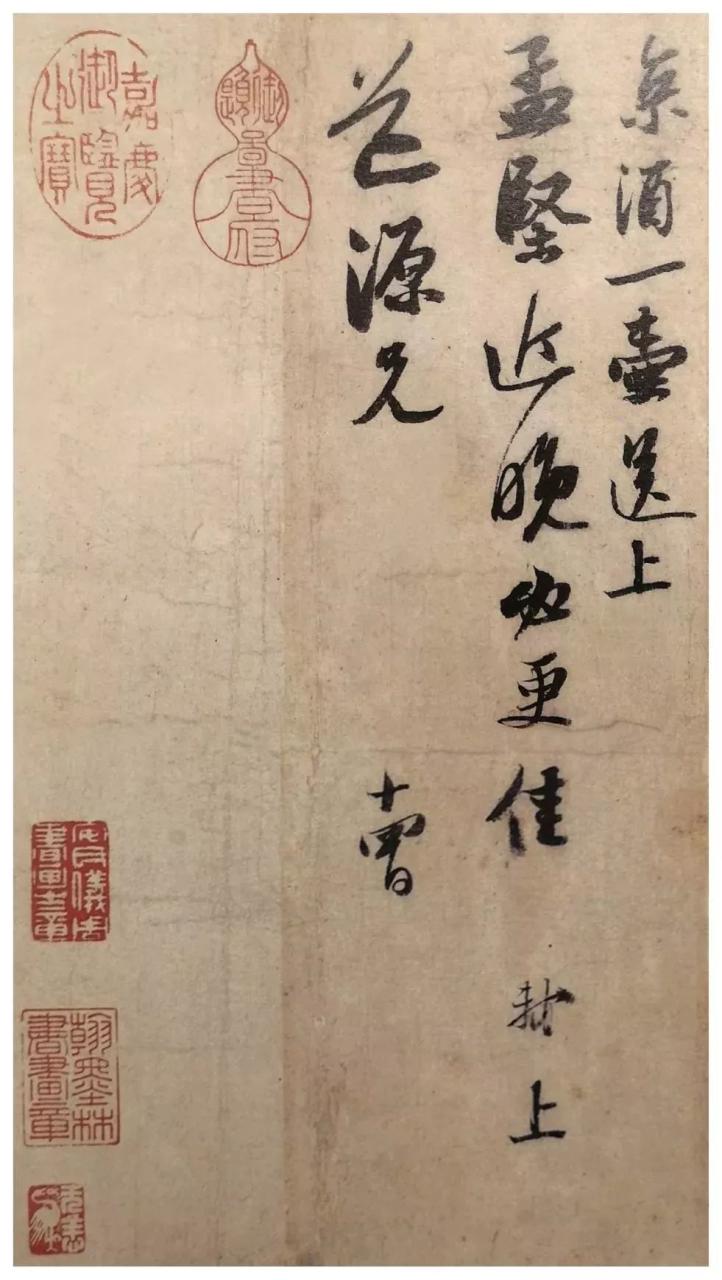 京酒一壺送上
孟堅近晚必更佳 軾上
道源兄 十四日
嘉慶御覽之寶
安氏儀周書畫之章
翰墨林書畫章